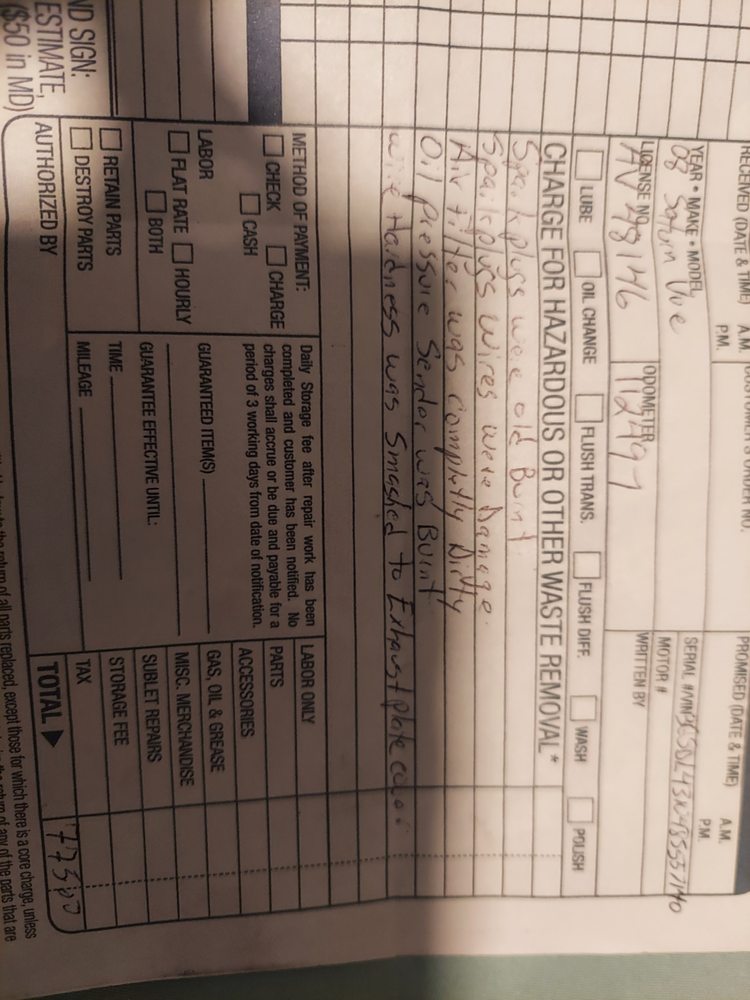 RECEIVED (DATE & TIME) A.M.
P.M.
PROMISED (DATE & TIME) A.M.
P.M.
YEAR • MAKE • MODEL
08 Saturn Vue
SERIAL #/VIN
MOTOR #
LICENSE NO.
AV48146
ODOMETER
WRITTEN BY
LUBE OIL CHANGE FLUSH TRANS. FLUSH DIFF. WASH POLISH
CHARGE FOR HAZARDOUS OR OTHER WASTE REMOVAL*
Spark plugs were old Burnt
Spark plugs wires were Damage.
Air filter was completly Dirty
Oil pressure Sender was Burnt.
wire Hardness was Smashed to Exhaust plate cover
METHOD OF PAYMENT:
CHECK CHARGE
CASH
LABOR
FLAT RATE HOURLY
BOTH
RETAIN PARTS
DESTROY PARTS
AUTHORIZED BY
Daily Storage fee after repair work has been
completed and customer has been notified. No
charges shall accrue or be due and payable for a
period of 3 working days from date of notification.
GUARANTEED ITEM(S)
GUARANTEE EFFECTIVE UNTIL:
TIME
MILEAGE
LABOR ONLY
PARTS
ACCESSORIES
GAS, OIL & GREASE
MISC. MERCHANDISE
SUBLET REPAIRS
STORAGE FEE
TAX
TOTAL ▶
ND SIGN:
ESTIMATE,
($50 in MD)
the return of all parts replaced, except those for which there is a core charge, unless
the return of any of the parts that are